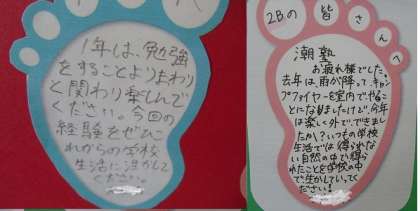 1年は、勉強
をすることよりまわり
と関わり楽しんで
ください。今回の
経験をぜひこ
れからの学校
生活に活かして
ください。
2Bの皆さんへ
潮塾
お疲れ様でした。
去年は、雨が降って キャン
プファイヤーを室内でやるこ
とになりましたけど、今年
は楽しく外で、できまし
たか？いつもの学校
生活では得られな
い自然の中で得ら
れたことを学校の中
で生かしていって
ください！